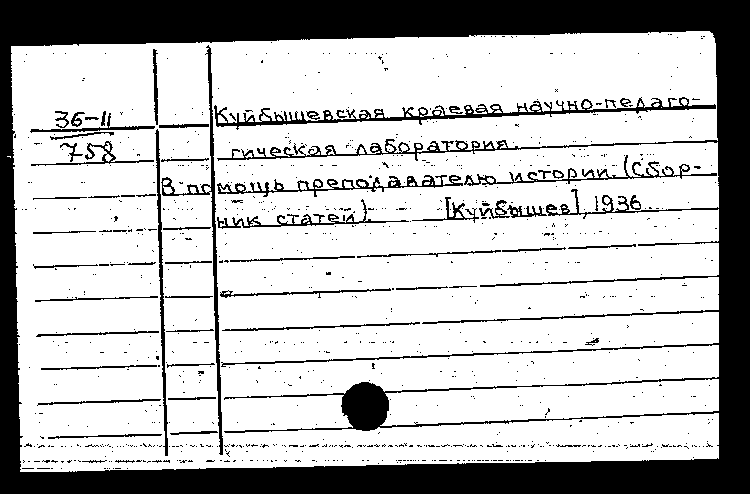 36-11
758
Куйбышевская краевая научно-педаго-
гическая лаборатория.
В помощь преподавателю истории. (Сбор-
ник статей). [Куйбышев], 1936.